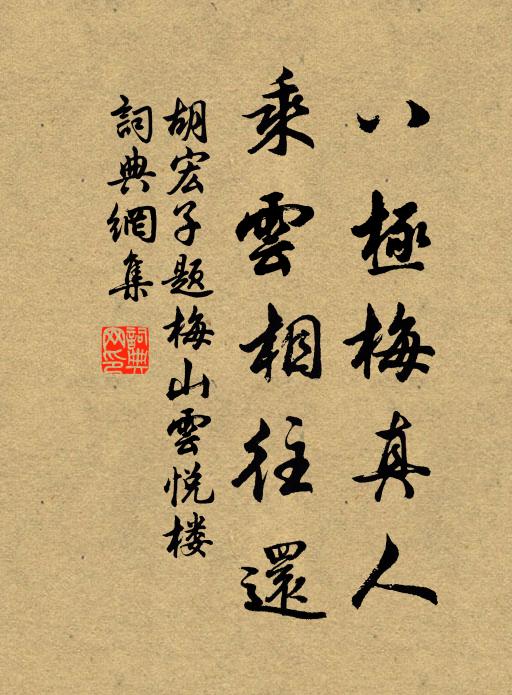 八極梅真人
乘雲相往還
胡宏子题梅山雲悦楼
詞典網集
詞典网印